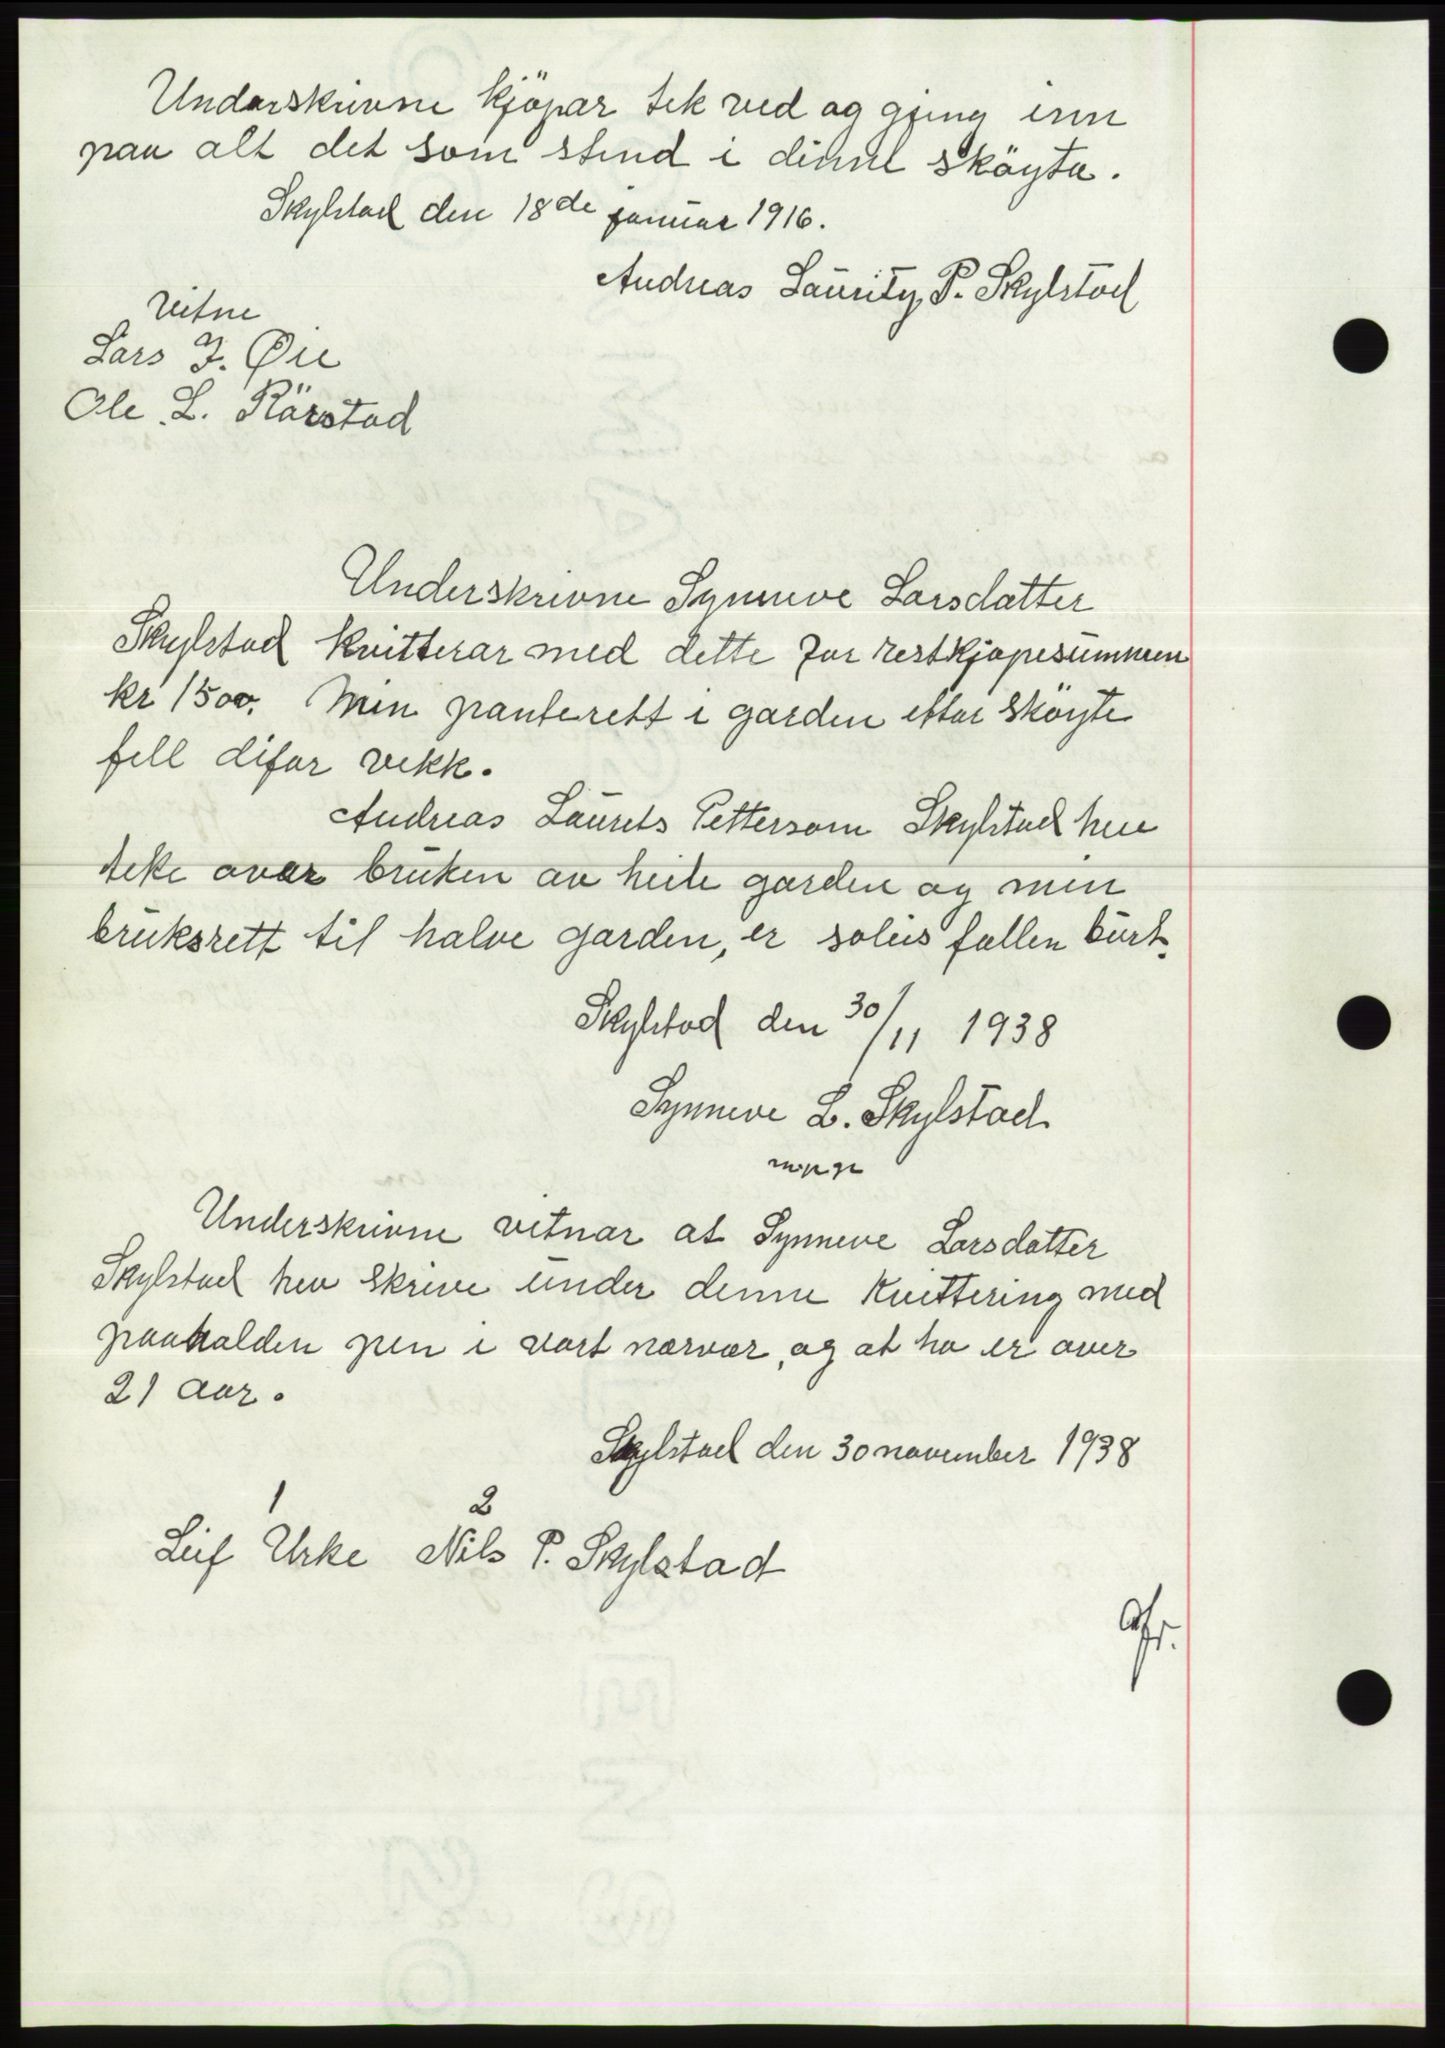 Underskrivne kjöpar tek ved og gjeng inn
paa alt det som stend i denne sköyta.
Skylstad den 18de januar 1916.
Andreas Lauritz P. Skylstad
Vitne
Lars J. Øie
Ole L. Rörstad
Underskrivne Synneve Larsdatter
Skylstad kvitterar med dette for restkjøpesummen
kr 1500. Min panterett i garden ettar sköyte
fell difor vekk.
Andreas Laurits Petterson Skylstad hev
teke over bruken av heile garden og min
bruksrett til halve garden, er soleis fallen burt.
Skylstad den 30/11 1938
Synneve L. Skylstad
Underskrivne vitnar at Synneve Larsdatter
Skylstad hev skrive under denne kvittering med
paahalden pen i vort nærvær, og at ho er over
21 aar.
Skylstad den 30 november 1938
1 2
Leif Urke Nils P. Skylstad